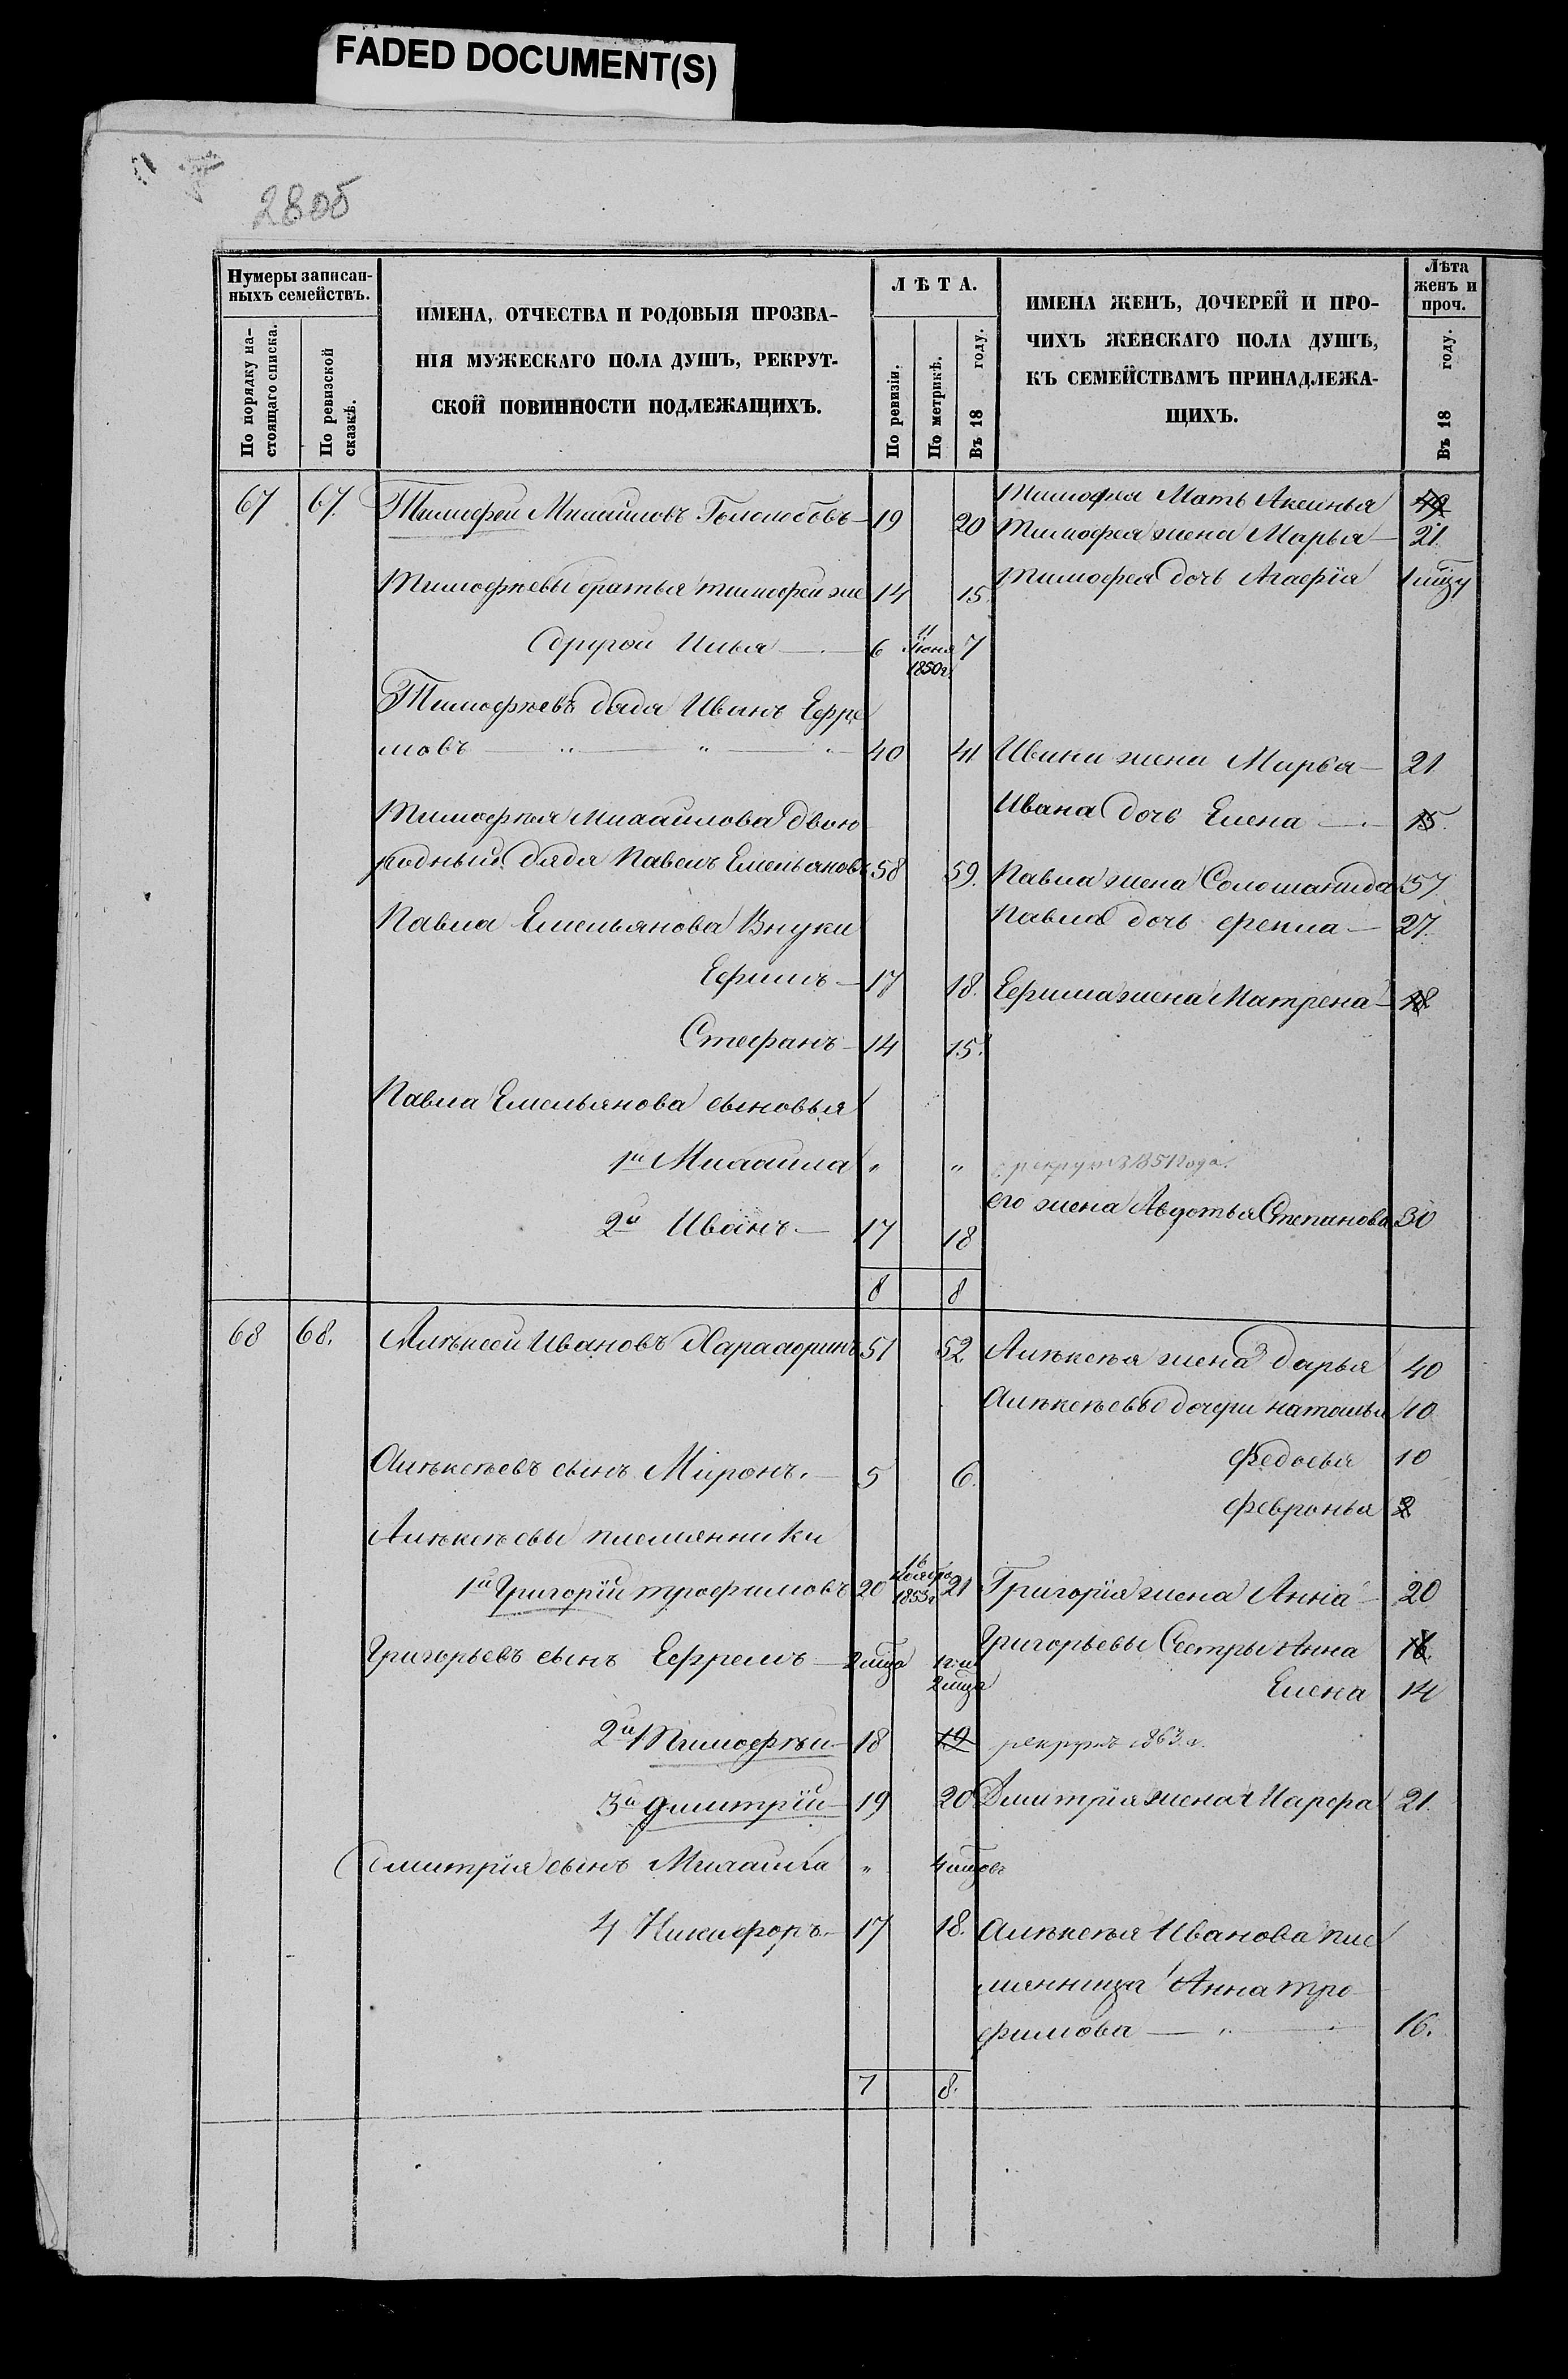 FADED DOCUMENT(S)
280б
Нумеры записан-
ныхъ семействъ.
По порядку на-
стоящаго списка.
По ревизской
сказкѣ.
ИМЕНА, ОТЧЕСТВА И РОДОВЫЯ ПРОЗВА-
НІЯ МУЖЕСКАГО ПОЛА ДУШЪ, РЕКРУТ-
СКОЙ ПОВИННОСТИ ПОДЛЕЖАЩИХЪ.
ЛѢТА.
По ревизіи.
По метрикѣ.
Въ 18 году.
ИМЕНА ЖЕНЪ, ДОЧЕРЕЙ И ПРО-
ЧИХЪ ЖЕНСКАГО ПОЛА ДУШЪ,
КЪ СЕМЕЙСТВАМЪ ПРИНАДЛЕЖА-
ЩИХЪ.
Лѣта
женъ и
проч.
Въ 18 году.
Тимофея Мать Аксинья
67 67. Тимофей Михайловъ 19 20
Тимофея жена Марья 21
Тимофѣевы братья тимофей же 14 15.
Тимофея дочь Агафія 1 мцу
Другой Илья 6 11 Іюня 1850г. 7
Тимофѣевъ дядя Иванъ Ефре
мовъ 40 41 Ивана жена Марья 21
Ивана дочь Елена 15.
Тимофѣя Михайлова двою
родный дядя Павелъ Емельяновъ 58 59. Павла жена Соломанида 57.
Павла Емельянова Внуки
Павла дочь фекла 27.
Ефимъ 17 18. Ефима жена Матрена 18.
Стефанъ 14 15.
Павла Емельянова сыновья
1й Михаила " " рекрутъ 1851 года.
его жена Авдотья Степанова 30
2й Иванъ 17 18
8 8
68 68. Алѣксей Ивановъ 51 52 Алѣксѣя жена дарья 40
Алѣксѣевы дочери наталья 10
Алѣксѣевъ сынъ Миронъ. 5 6.
Федосья 10
Февронья 2
Алѣксѣевы племянники
1й Григорій трофимовъ 20 16 Ноября 1853г. 21 Григорія жена Анна 20
Григорьевъ сынъ Ефремъ 2 мца 1 г. и 2 мца
Григорьевы Сестры Анна 16.
Елена 14
2й Тимофѣй 18 19 рекрутъ 1863.г.
3й Дмитрій 19 20 Дмитрія жена Марфа 21.
Дмитрія сынъ Михаила " 4 мцовъ
4 Никифоръ. 17 18. Алѣксѣя Иванова пле
мянница Анна тро
фимова 16.
7 8.